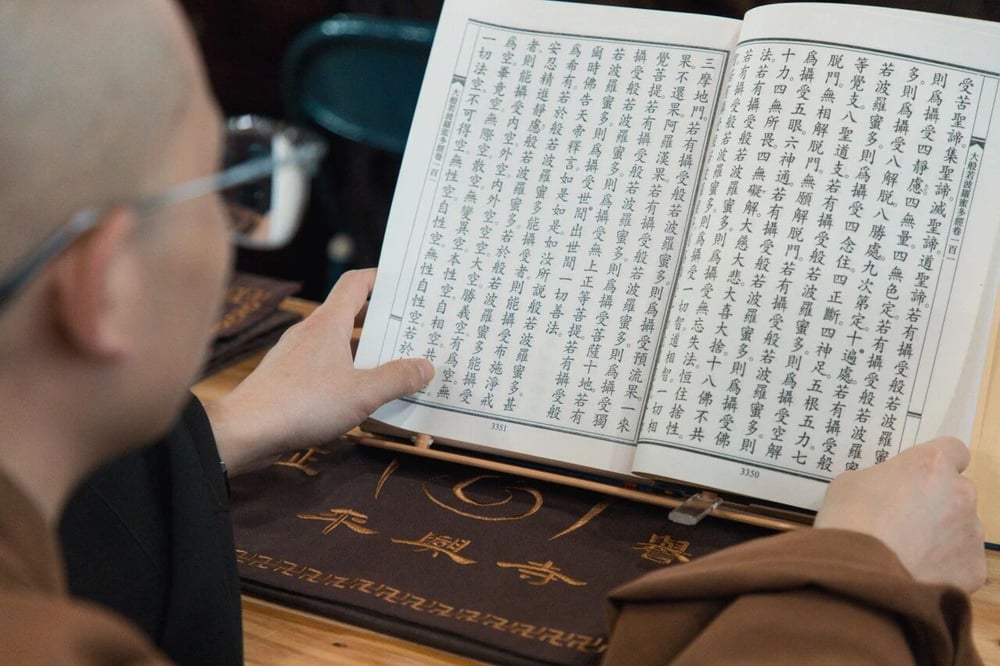 受苦聖諦。集聖諦滅聖諦道聖諦。若有攝受般若波羅蜜
則爲攝受四靜慮四無量四無色定若有攝受般若波羅蜜
多。則爲攝受八解脫八勝處九次第定十遍處。若有攝受般
若波羅蜜多則爲攝受四念住四正斷四神足五根五力七
等覺支。八聖道支若有攝受般若波羅蜜多則爲攝受空解
脫門。無相解脫門無願解脫門。若有攝受般若波羅蜜多則
爲攝受五眼。六神通若有攝受般若波羅蜜多則爲攝受佛
十力四無所畏四無礙解大慈大悲大喜大捨十八佛不共
法。若有攝受般若波羅蜜多則爲攝受無忘失法恒住捨性。
若有攝受般若波羅蜜多則爲攝受一切智道相智一切相
大般若波羅蜜多經卷一百
3350
三摩地門。若有攝受般若波羅蜜多則爲攝受預流果一來
果不還果阿羅漢果若有攝受般若波羅蜜多則爲攝受獨
覺菩提。若有攝受般若波羅蜜多則爲攝受菩薩十地若有
攝受般若波羅蜜多。則爲攝受無上正等菩提。若有攝受般
若波羅蜜多則爲攝受世間出世間一切善法。
爾時佛告天帝釋言如是如是如汝所說般若波羅蜜多甚
爲希有若於般若波羅蜜多能攝受者則能攝受布施淨戒
安忍精進靜慮般若波羅蜜多。若於般若波羅蜜多能攝受
者則能攝受內空外空內外空空空大空勝義空有爲空無
爲空畢竟空無際空散空無變異空本性空自相空共
一切法空不可得空無性空自性空無性自性空若於
大般若波羅蜜多經卷一百
3351
正
興寺